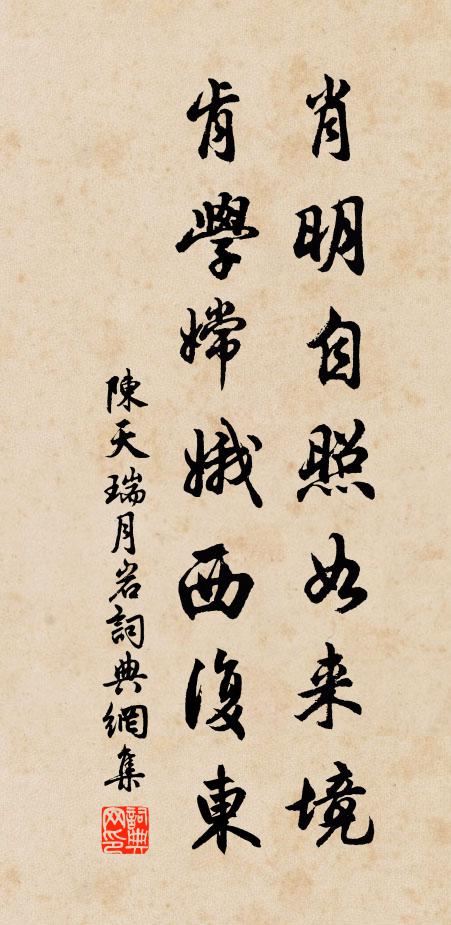 肖明自照如来境
肯學嫦娥西復東
陳天瑞月岩詞典網集
詞典网印